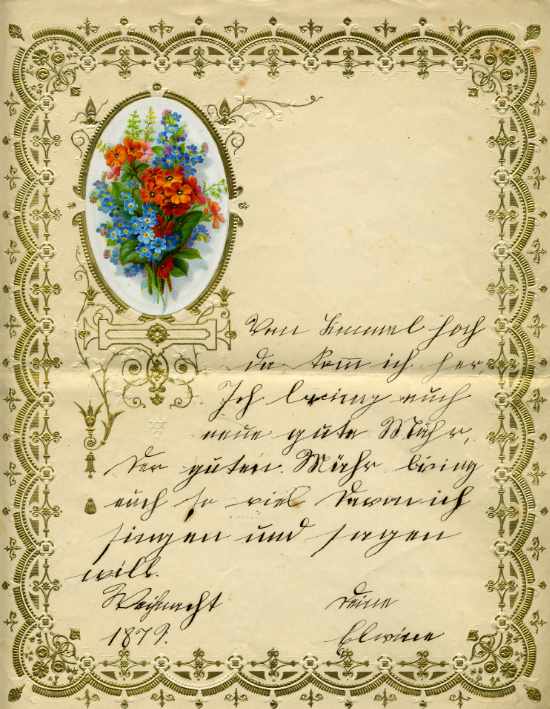 Vom Himmel hoch
da komm ich her
Ich bring euch
neue gute Mähr,
Der guten Mähr bring
euch so viel Davon ich
singen und sagen
will.
Weihnacht
1879.
Deine
Elwine